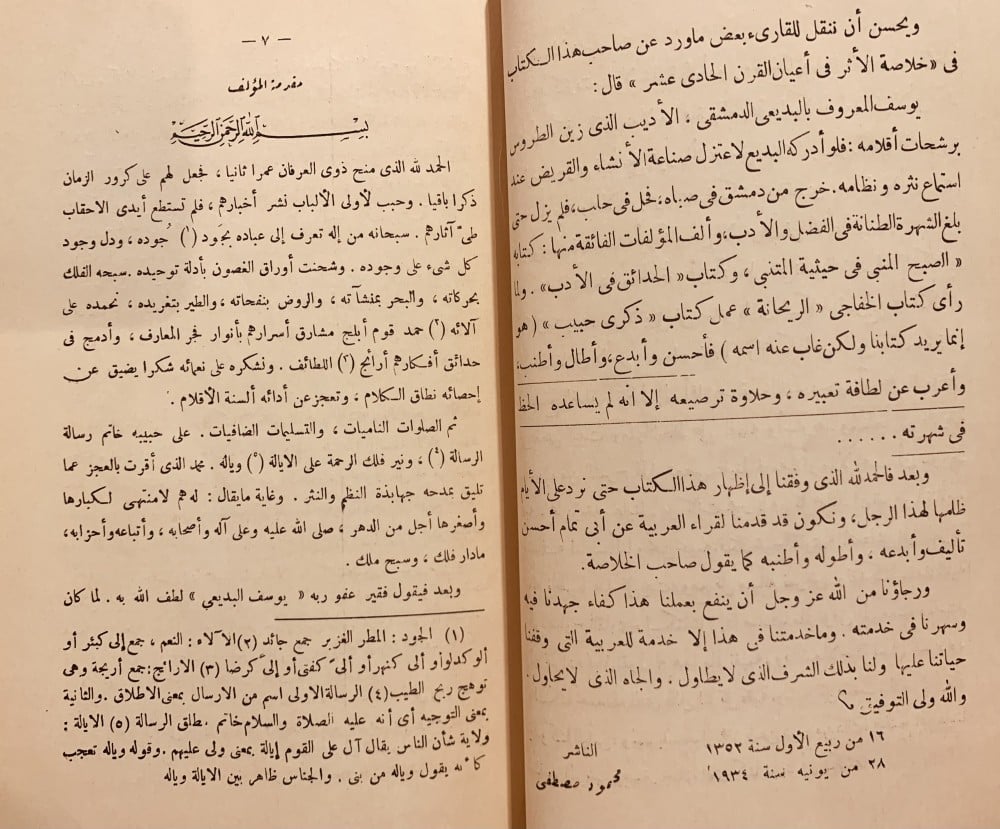 ويحسن أن ننقل للقارىء بعض ماورد عن صاحب هذا الكتاب
فى «خلاصة الأثر فى أعيان القرن الحادى عشر» قال :
يوسف المعروف بالبديعى الدمشقى ، الأديب الذى زين الطروس
برشحات أقلامه : فلو أدركه البديع لاعتزل صناعة الأنشاء والقريض عند
استماع نثره ونظامه . خرج من دمشق فى صباه ، فحل فى حلب ، فلم يزل حتى
بلغ الشهرة الطنانة فى الفضل والأدب ، وألف المؤلفات الفائقة منها : كتابه
« الصبح المنبى فى حيثية المتنبى ، وكتاب « الحدائق فى الأدب» . ولما
رأى كتاب الخفاجى « الريحانة » عمل كتاب « ذكرى حبيب » ( هو
إنما يريد كتابنا ولكن غاب عنه اسمه ) فأحسن وأبدع ، وأطال وأطنب ،
وأعرب عن لطافة تعبيره ، وحلاوة ترصيعه إلا انه لم يساعده الحظ
فى شهرته . . . . . .
وبعد فالحمد لله الذى وفقنا إلى إظهار هذا الكتاب حتى نرد على الأيام
ظلمها لهذا الرجل ، ونكون قد قدمنا لقراء العربية عن أبى تمام أحسن
تأليف وأبدعه ، وأطوله وأطنبه كما يقول صاحب الخلاصة .
ورجاؤنا من الله عز وجل أن ينفع بعملنا هذا كفاء جهدنا فيه
وسهرنا فى خدمته . وما خدمتنا فى هذا إلا خدمة للعربية التى وقفنا
حياتنا عليها ولنا بذلك الشرف الذى لايطاول . والجاه الذى لايحاول .
والله ولى التوفيق ؟
١٦ من ربيع الأول سنة ١٣٥٢
٢٨ من يونيه سنة ١٩٣٤
الناشر
محمود مصطفى
— ٧ —
مقدمة المؤلف
بسم الله الرحمن الرحيم
الحمد لله الذى منح ذوى العرفان عمرا ثانيا ، فجعل لهم على كرور الزمان
ذكرا باقيا . وحبب لأولى الألباب نشر أخبارهم ، فلم تستطع أيدى الاحقاب
طىّ آثارهم . سبحانه من إله تعرف إلى عباده بجَود (١) جُوده ، ودل وجود
كل شىء على وجوده . وشحنت أوراق الغصون بأدلة توحيده . سبحه الفلك
بحركاته ، والبحر بمنشآته ، والروض بنفحاته ، والطير بتغريده ، نحمده على
آلائه (٢) حمد قوم أبلج مشارق أسرارهم بأنوار فجر المعارف ، وأدمج فى
حدائق أفكارهم أرائج (٣) اللطائف . ونشكره على نعمائه شكرا يضيق عن
إحصائه نطاق الكلام ، وتعجز عن أدائه ألسنة الأقلام .
ثم الصلوات الناميات ، والتسليمات الضافيات . على حبيبه خاتم رسالة
الرسالة (٤) ، ونير فلك الرحمة على الايالة (٥) وياله . محمد الذى أقرت بالعجز عما
تليق بمدحه جهابذة النظم والنثر . وغاية مايقال : له هم لامنتهى لكبارها
وأصغرها أجل من الدهر ، صلى الله عليه وعلى آله وأصحابه ، وأتباعه وأحزابه ،
مادار فلك ، وسبح ملك .
وبعد فيقول فقير عفو ربه « يوسف البديعي » لطف الله به . لما كان
(١) الجود : المطر الغزير جمع جائد (٢) الآلاء : النعم ، جمع إلى كبئر أو
ألو كدلو أو ألى كنهر أو ألىً كفتى أو إلىً كرضا (٣) الارائج : جمع أريجة وهى
توهج ريح الطيب (٤) الرسالة الاولى اسم من الارسال بمعنى الاطلاق . والثانية
بمعنى التوجيه أى أنه عليه الصلاة والسلام خاتم مطلق الرسالة (٥) الايالة :
ولاية شأن الناس يقال آل على القوم إيالة بمعنى ولى عليهم . وقوله وياله تعجب
كأنه يقول وياله من نبى . والجناس ظاهر بين الايالة وياله